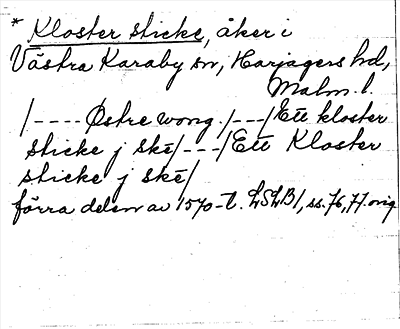 * Kloster sticke, åker i
Västra Karaby sn, Harjagers hd,
Malm. l.
/---- Østre wong. /---/ Ett kloster
sticke j skè /---/ Ett Kloster
sticke j skè /
förra delen av 1570-t. LSLB1, ss. 76, 77. orig